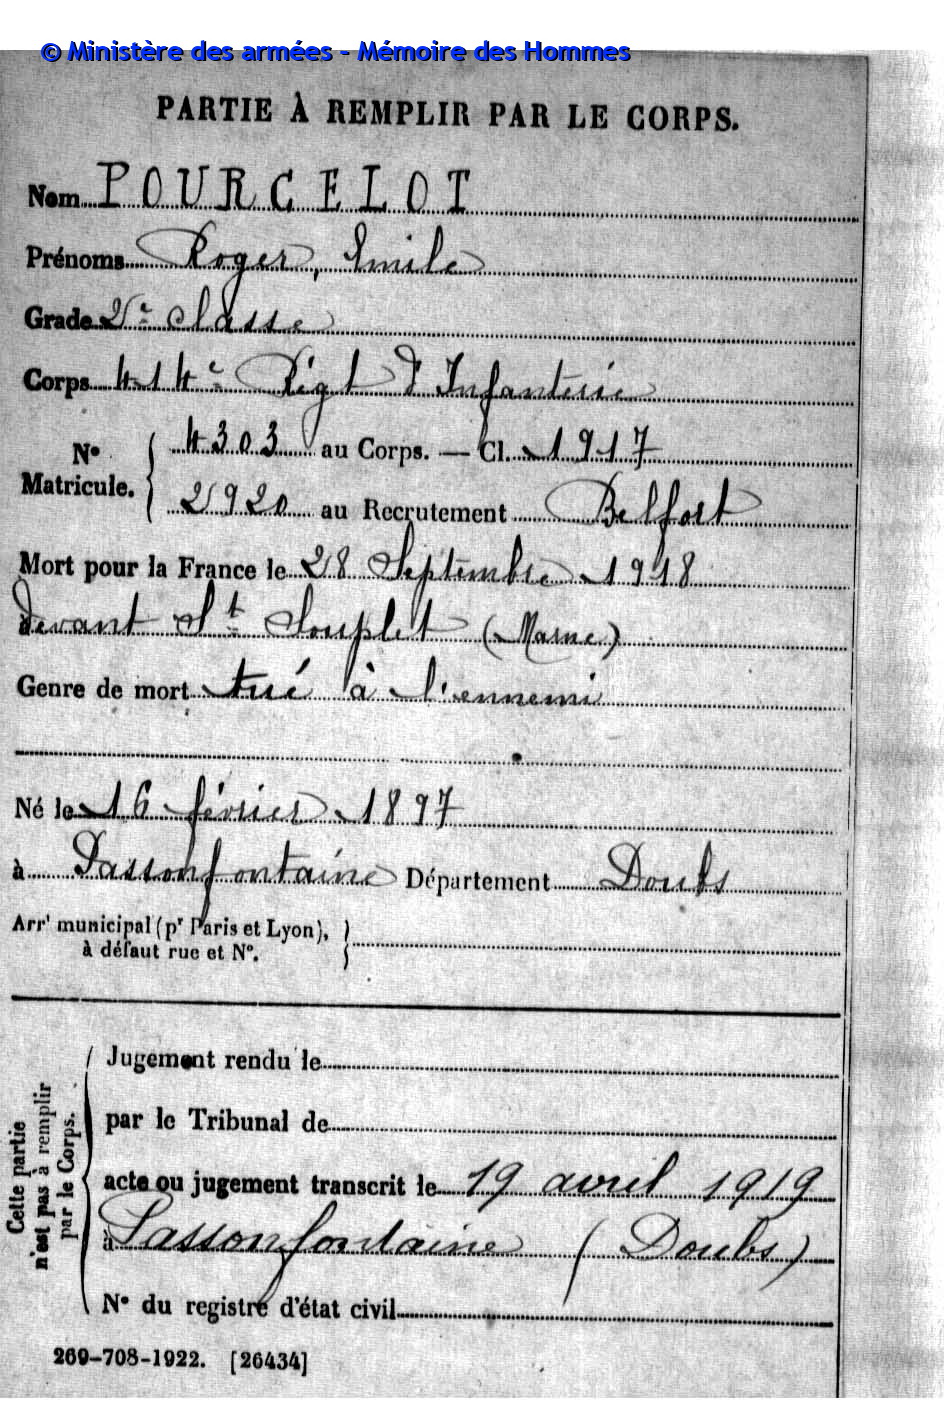 © Ministère des armées - Mémoire des Hommes
PARTIE À REMPLIR PAR LE CORPS.
Nom POURCELOT
Prénoms Roger, Emile
Grade 2e classe
Corps 414e Régt d'Infanterie
No Matricule. 4303 au Corps. — Cl. 1917
2920 au Recrutement Belfort
Mort pour la France le 28 Septembre 1918
devant St Souplet (Marne)
Genre de mort tué à l'ennemi
Né le 16 février 1897
à Passonfontaine Département Doubs
Arrt municipal (pr Paris et Lyon),
à défaut rue et No.
Cette partie
n'est pas à remplir
par le Corps.
Jugement rendu le
par le Tribunal de
acte ou jugement transcrit le 19 avril 1919
à Passonfontaine (Doubs)
No du registre d'état civil
269-708-1922. [26434]